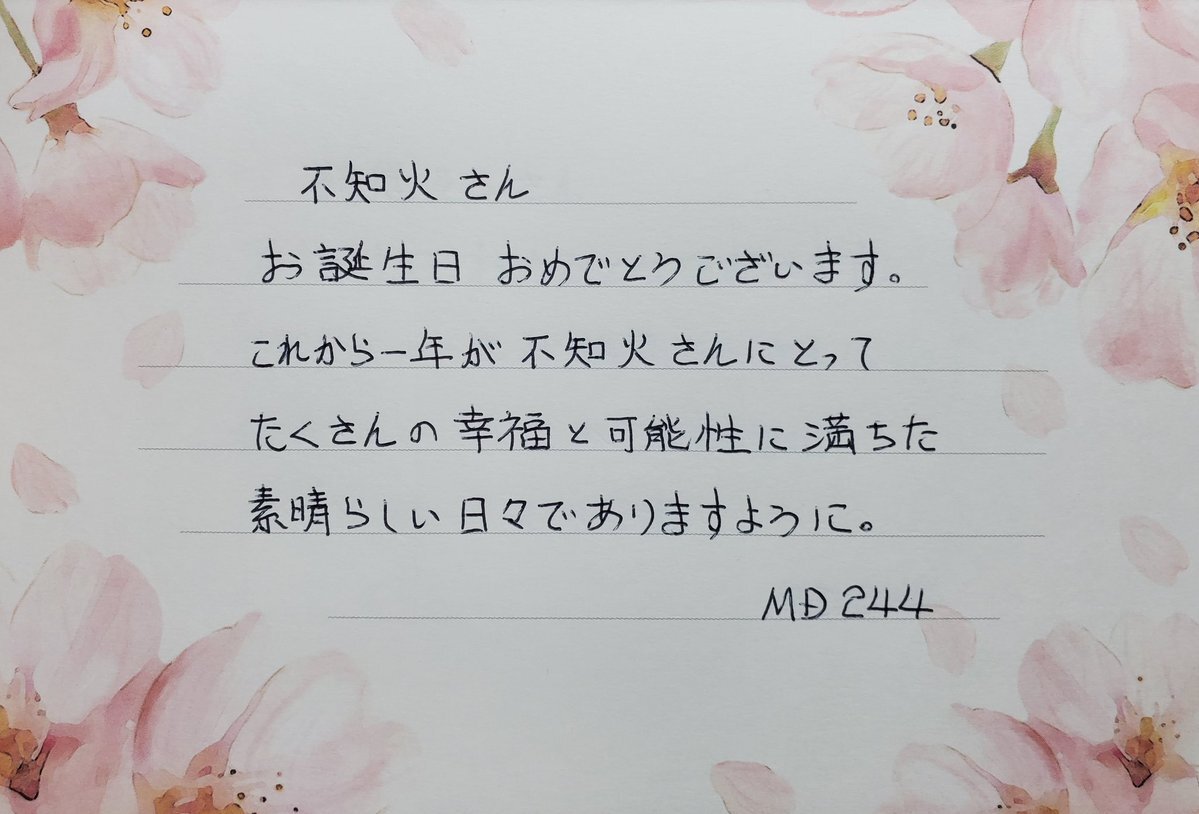 不知火さん
お誕生日 おめでとうございます。
これから一年が 不知火さんにとって
たくさんの幸福と可能性に満ちた
素晴らしい日々でありますように。
MD244